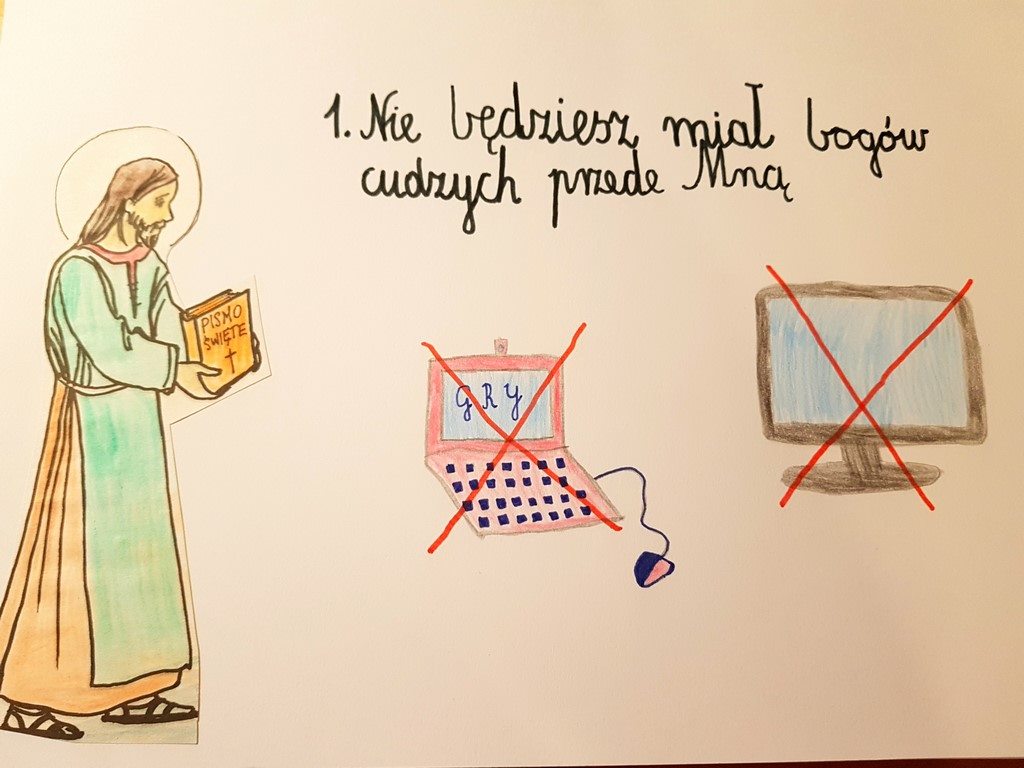 1. Nie będziesz miał bogów
cudzych przede Mną
PISMO
ŚWIĘTE
GRY